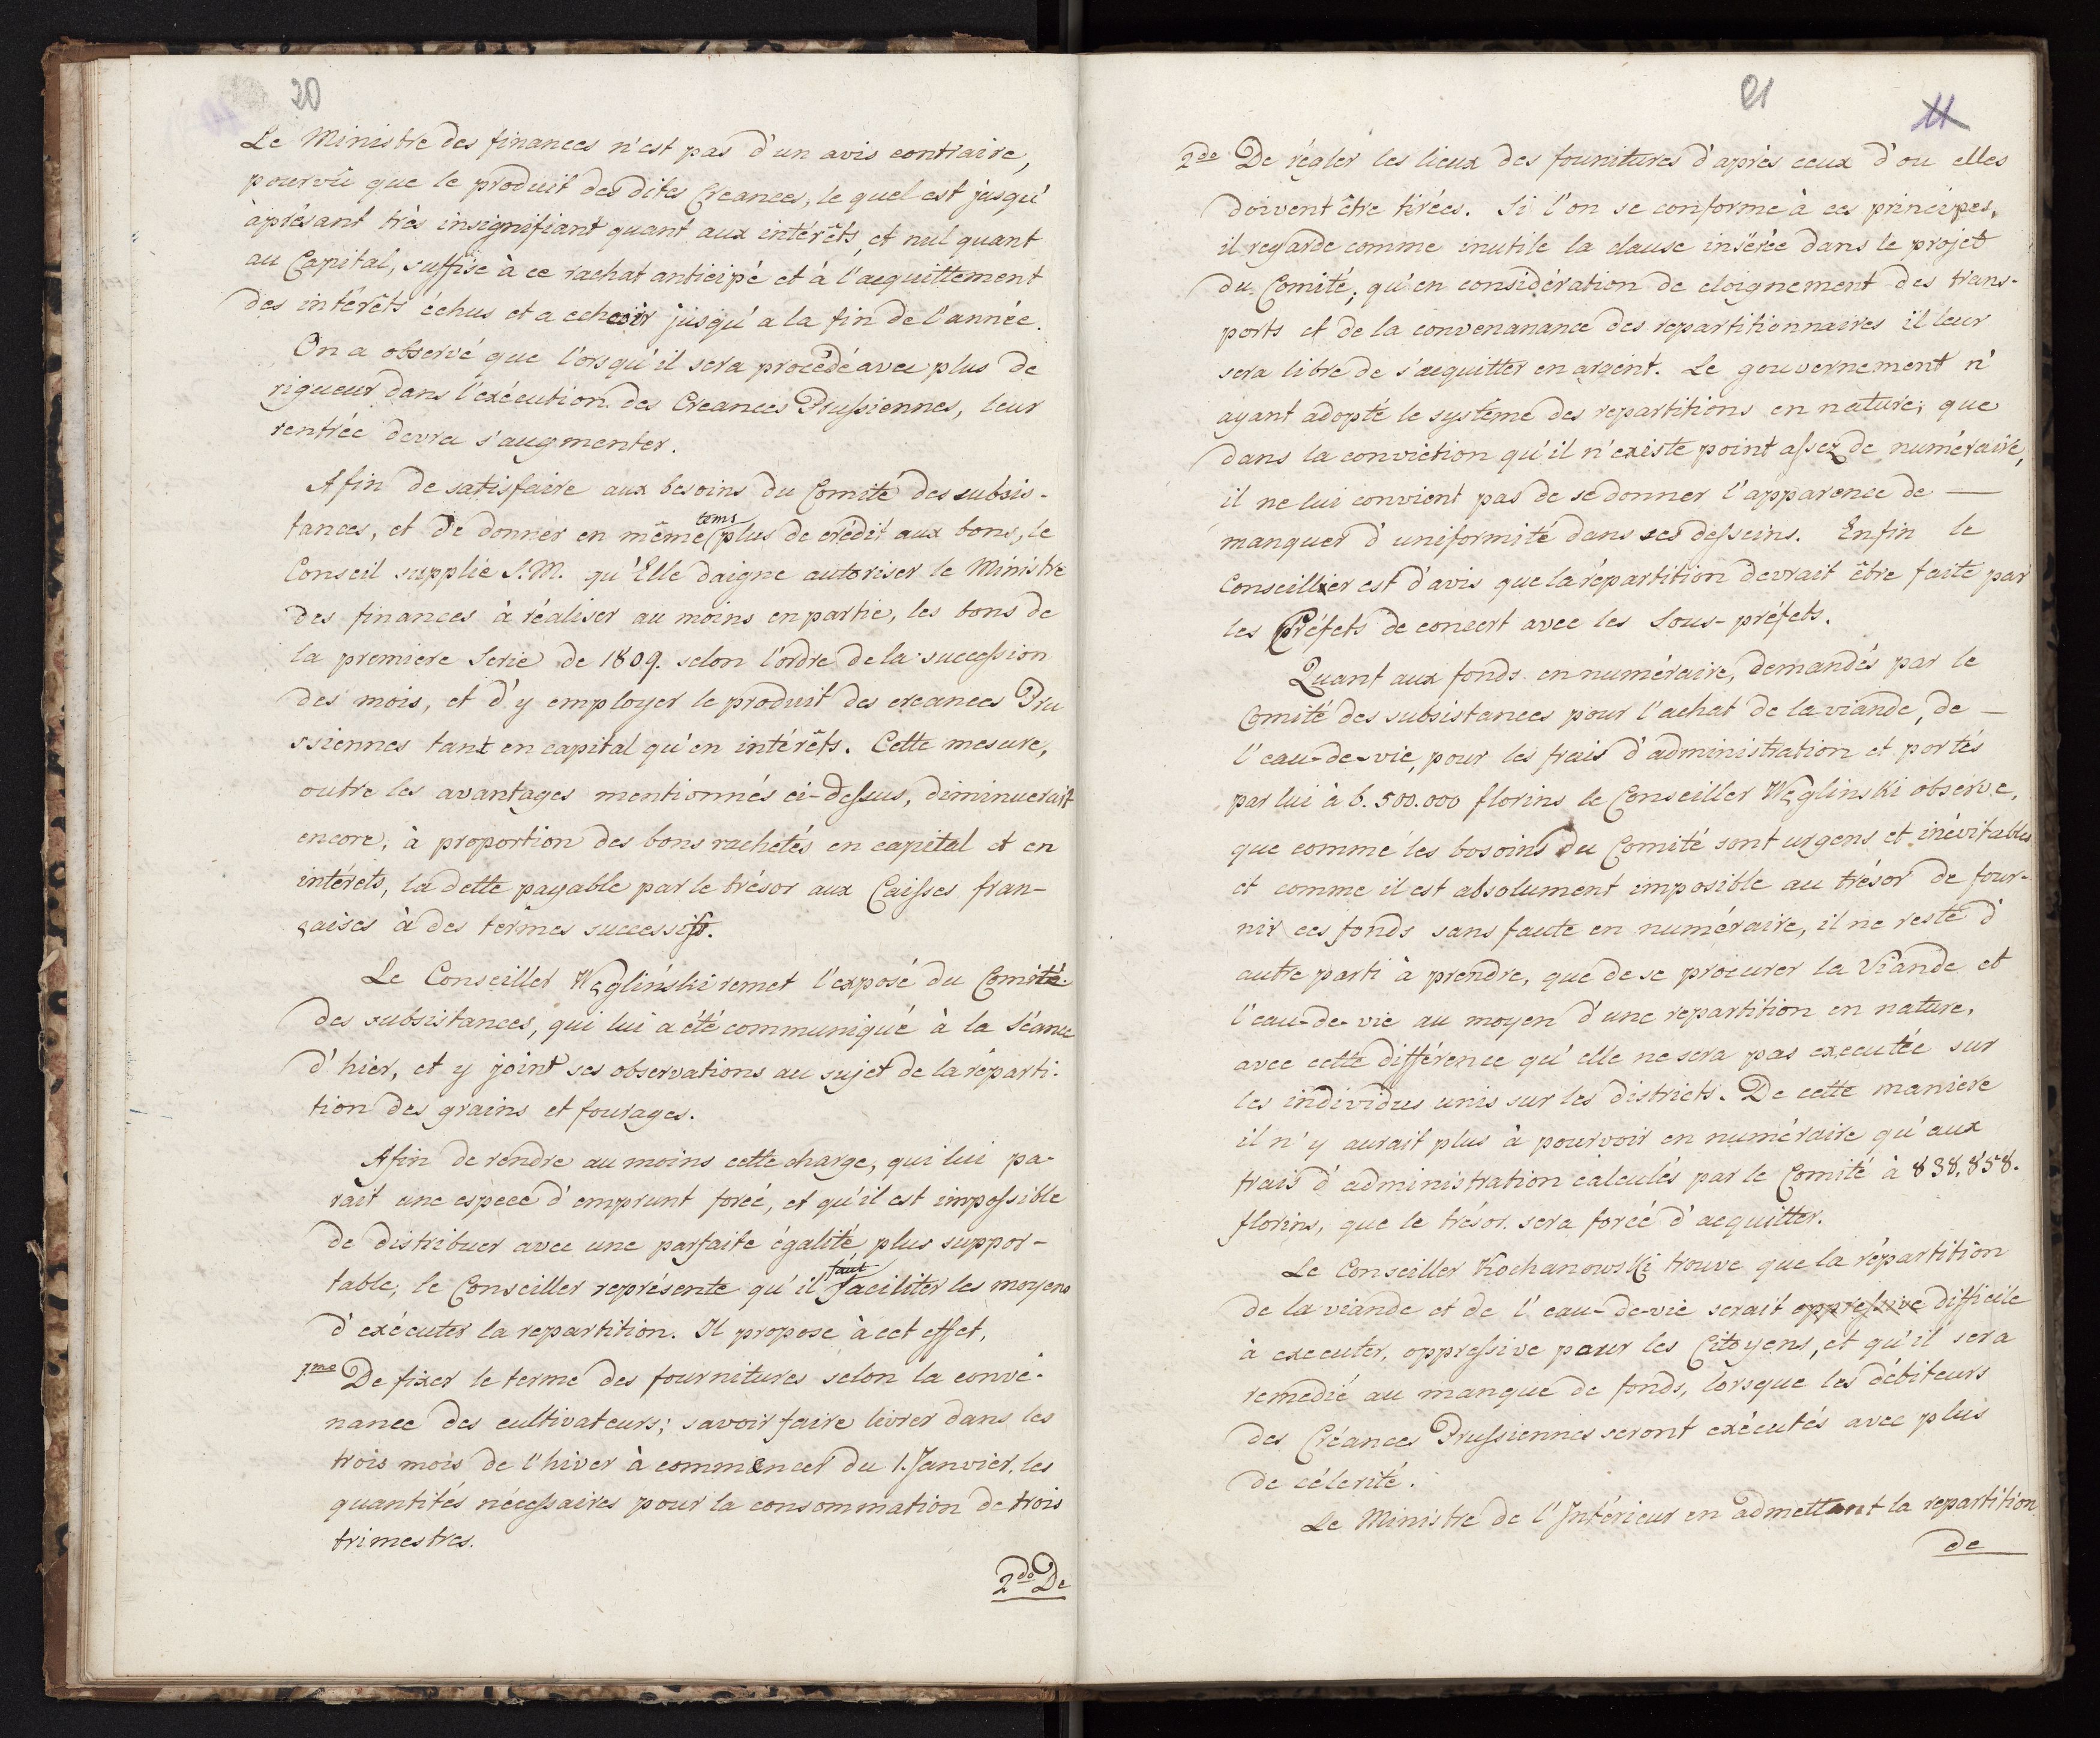 20
Le Ministre des finances n'est pas d'un avis contraire,
pourvû que le produit des dites Creances, le quel est jusqu'
àprésant très insignifiant quant aux intérêts, et nul quant
au Capital, suffise à ce rachat anticipé et à l'acquittement
des intérêts échus et a echeoir jusqu'a la fin de l'année.
On a observé que l'orsqu'il sera procédé avec plus de
rigueur dans l'exécution des Creances Prussiennes, leur
rentrée devra s'augmenter.
Afin de satisfaire aux besoins du Comité des subsis-
tances, et de donner en même tems plus de crédit aux bons, le
Conseil supplie S.M. qu'Elle daigne autoriser le Ministre
des finances à réaliser au moins en partie, les bons de
la premiere Serie de 1809. selon l'ordre de la succession
des mois, et d'y employer le produit des creances Pru
ssiennes tant en capital qu'en intérêts. Cette mesure,
outre les avantages mentionnés ci-dessus, diminuerait
encore, à proportion des bons rachetés en capital et en
intérets, la dette payable par le trésor aux Caisses fran-
çaises à des termes successifs.
Le Conseiller Węgliński remet l'exposé du Comité
des subsistances, qui lui a été communiqué à la Séance
d'hier, et y joint ses observations au sujet de la réparti-
tion des grains et fourages.
Afin de rendre au moins cette charge, qui lui pa-
rait une espece d'emprunt forcé, et qu'il est impossible
de distribuer avec une parfaite égalité, plus suppor-
table, le Conseiller représente qu'il faut faciliter les moyens
d'exécuter la repartition. Il propose à cet effet,
1mo De fixer le terme des fournitures selon la conve-
nance des cultivateurs; savoir faire livrer dans les
trois mois de l'hiver à commencer du 1. Janvier, les
quantités nécessaires pour la consommation de trois
trimestres.
2do De
21
11
2do De régler les lieux des founitures d'après ceux d'ou elles
doivent être tirées. Si l'on se conforme à ces principes,
il regarde comme inutile la clause insérée dans le projet
du Comité, qu'en considération de eloignement des trans-
ports et de la convenanance des repartitionnaires il leur
sera libre de s'acquitter en argent. Le gouvernement n'
ayant adopté le système des repartitions en nature, que
dans la conviction qu'il n'existe point assez de numéraire,
il ne lui convient pas de se donner l'apparence de —
manquer d'uniformité dans ses desseins. Enfin le
Conseiller est d'avis que la répartition devrait être faite par
les Préfets de concert avec les Sous-préfets.
Quant aux fonds en numéraire, demandés par le
Comité des subsistances pour l'achat de la viande, de —
l'eau-de-vie, pour les frais d'administration et portés
par lui à 6.500.000 florins le Conseiller Węglinski observe,
que comme les bosoins du Comité sont urgens et inévitables
et comme il est absolument imposible au trésor de four-
nir ces fonds sans faute en numéraire, il ne reste d'
autre parti à prendre, que de se procurer la Viande et
l'eau-de-vie au moyen d'une repartition en nature,
avec cette différence qu'elle ne sera pas executée sur
les individus unis sur les districts. De cette maniere
il n'y aurait plus à pourvoir en numéraire qu'aux
frais d'administration calculés par le Comité à 838.858.
florins, que le trésor sera forcé d'acquitter.
Le Conseiller Kochanowski trouve que la répartition
de la viande et de l'eau-de-vie serait oppressive difficile
à executer, oppressive pour les Citoyens, et qu'il sera
remedié au manque de fonds, lorsque les débiteurs
des Créances Prussiennes seront exécutés avec plus
de célerité.
Le Ministre de l'Intérieur en admettant la repartition
de